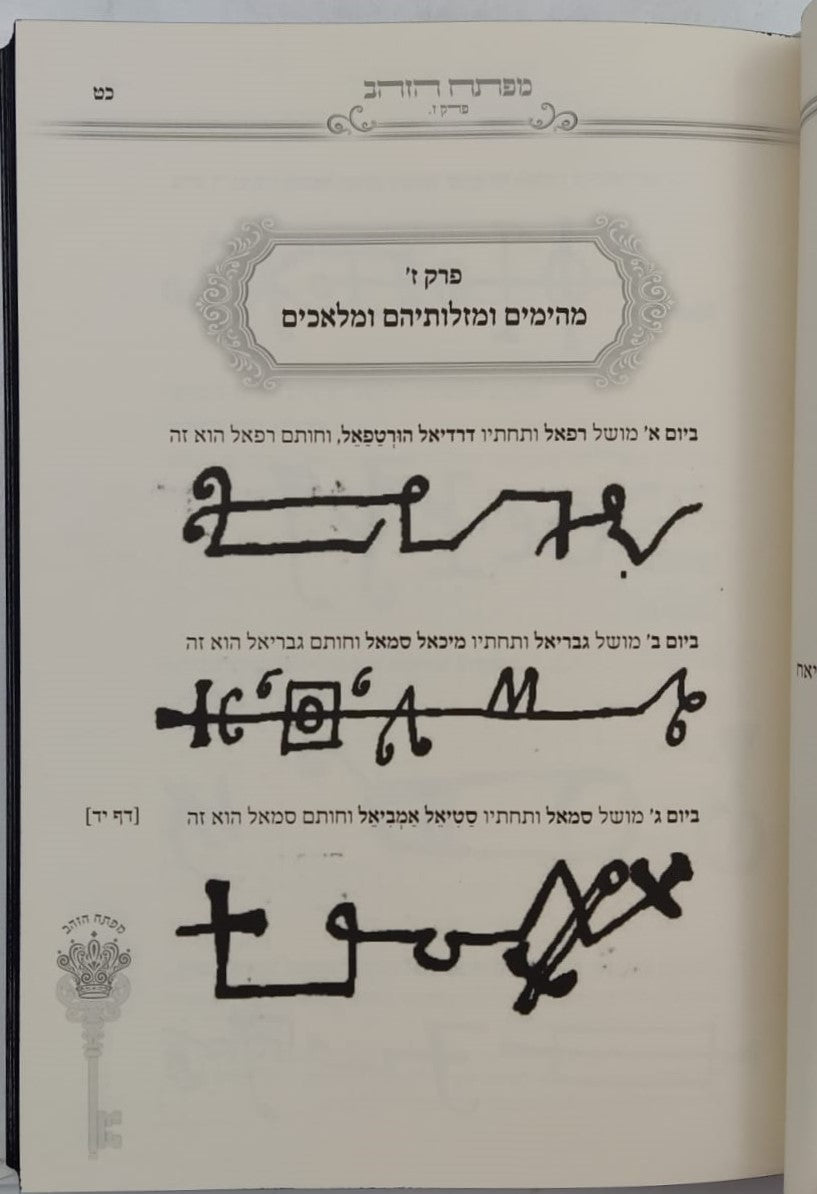 כט
מפתח הזהב
פרק ז.
פרק ז׳
מהימים ומזלותיהם ומלאכים
ביום א׳ מושל רפאל ותחתיו דרדיאל הוּרְטַפַאֵל, וחותם רפאל הוא זה
ביום ב׳ מושל גבריאל ותחתיו מיכאל סמאל וחותם גבריאל הוא זה
ביום ג׳ מושל סמאל ותחתיו סַטִיאֵל אַמְבִיאֵל וחותם סמאל הוא זה
[דף יד]
מפתח הזהב